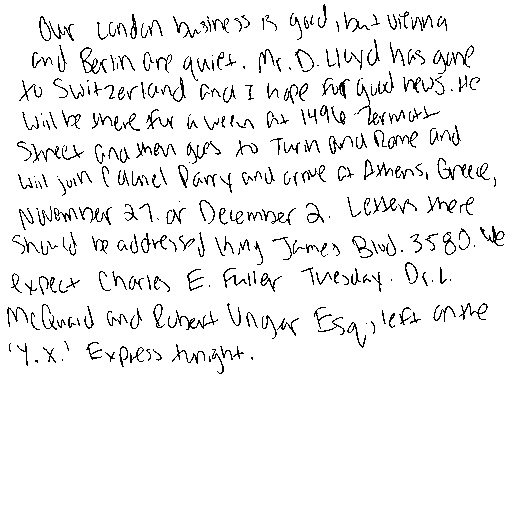 Our London business is good, but Vienna
and Berlin are quiet. Mr. D. Lloyd has gone
to Switzerland and I hope for good news. He
will be there for a week at 1496 Zermatt
Street and then goes to Turin and Rome and
will join Colonel Parry and arrive at Athens, Greece,
November 27. or December 2. Letters there
should be addressed King James Blvd. 3580. We
expect Charles E. Fuller Tuesday. Dr. L.
McQuaid and Robert Ungar Esq., left on the
'Y.X.' Express tonight.